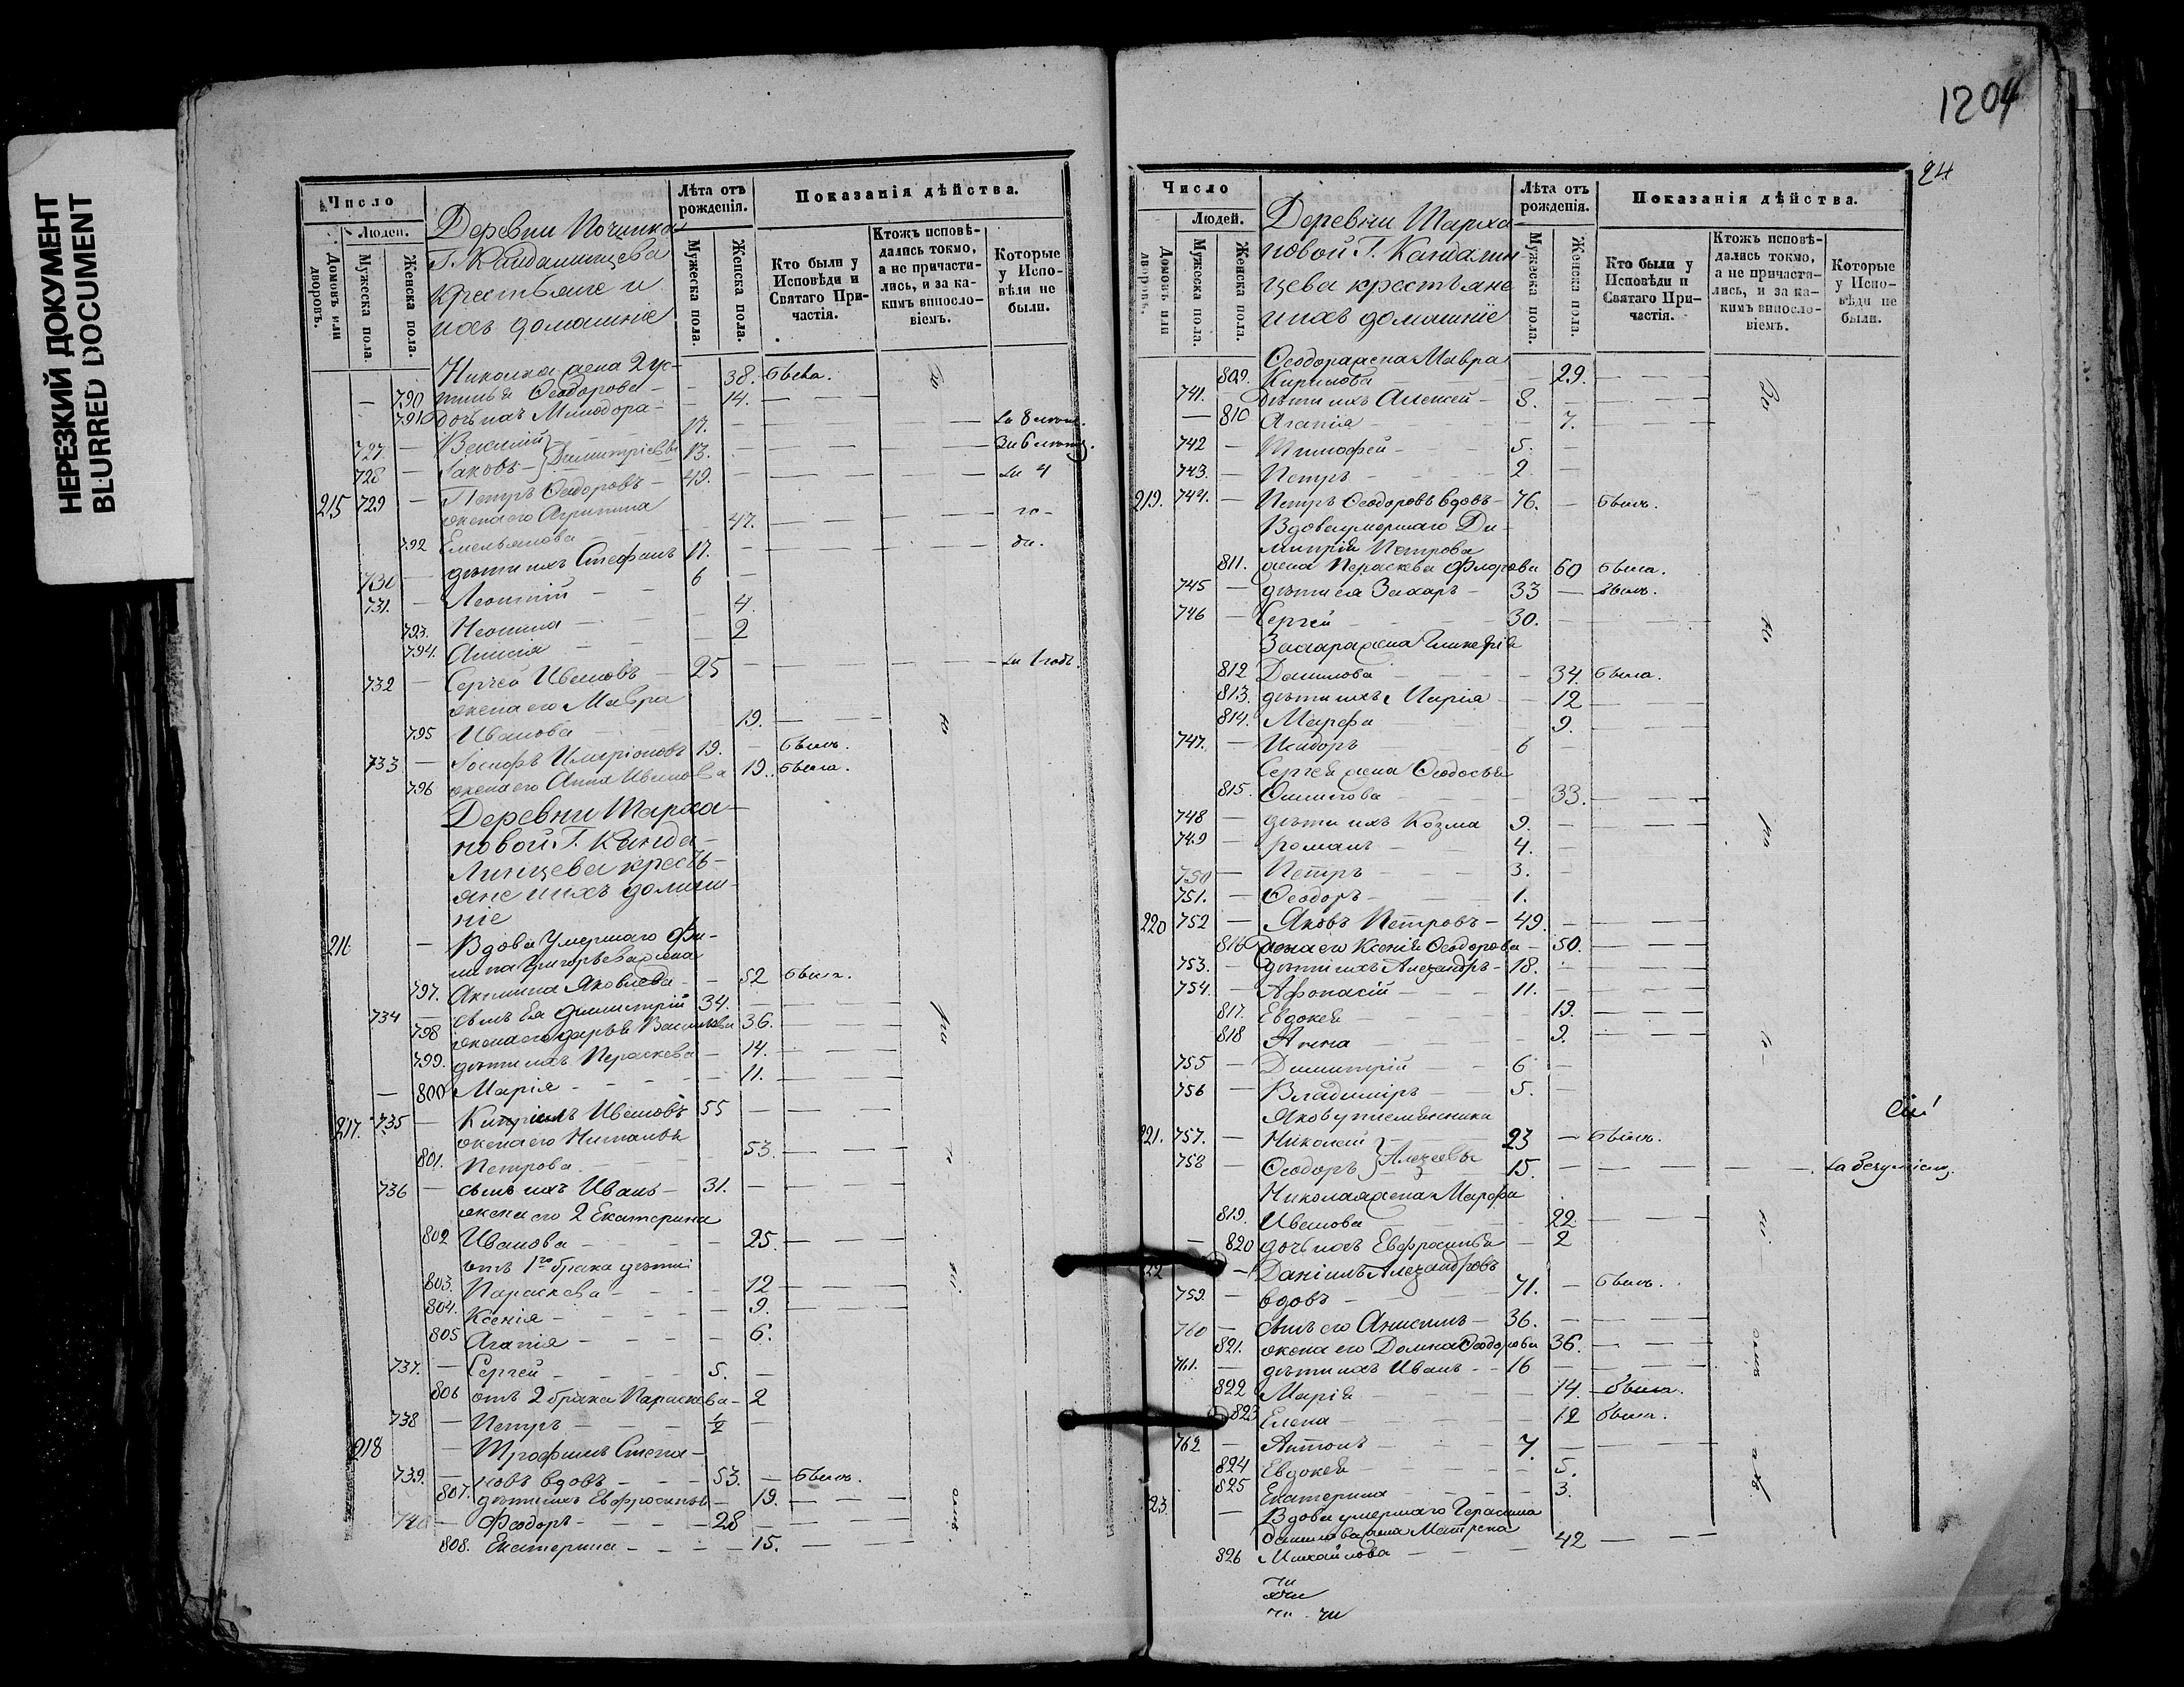 НЕРЕЗКИЙ ДОКУМЕНТ
BLURRED DOCUMENT
Число
Людей.
Домовъ или дворовъ.
Мужеска пола.
Женска пола.
Деревни Починка
Г. Кандалинцева
крестьяне и
ихъ домашніе
Лѣта отъ рожденія.
Мужеска пола.
Женска пола.
Показанія дѣйства.
Кто были у Исповѣди и Святаго Причастія.
Ктожъ исповѣдались токмо, а не причастились, и за какимъ винословіемъ.
Которые у Исповѣди не были.
Николая жена 2 Ус-
790 тинья Ѳеодорова - 38. была.
791 дочь ихъ Минодора - 14.
727. Василий 17.
728 Іаковъ } Димитріевы 13.
215 729 Петръ Ѳеодоровъ - 49.
жена его Агрипина
792 Емельянова 47.
730 дѣти ихъ Стефанъ 17.
731. Леонтій 6
793. Неонила 4.
794. Анисія 2
732 Сергей Ивановъ 25
жена его Мавра
795 Иванова 19.
733 Іосифъ Иларіоновъ 19. былъ.
796 жена его Анна Иванова 19. была.
Деревни Шарха-
новой Г. Канда-
линцева кресть-
яне и ихъ домаш-
ніе
216 Вдова умершаго Фи-
липа Григорьева жена
797. Акилина Яковлева 52 была.
734 сынъ ея Димитрій 34.
798 жена его Дарья Васильева 36.
799. дѣти ихъ Параскева 14.
800 Марія 11.
217. 735 Кирилъ Ивановъ 55
жена его Наталья
801. Петрова 53.
736 сынъ ихъ Иванъ 31.
жена его 2 Екатерина
802 Иванова 25.
отъ 1го брака дѣти
803. Параскева 12
804. Ксенія 9.
805 Агапія 6.
737. Сергей 5.
806 отъ 2 брака Параскева - 2
738 Петръ 1/2
218 Трофимъ Степа-
739. новъ вдовъ 53. былъ.
807. дѣти ихъ Евфросинья 19.
740 Феодоръ 28
808. Екатерина 15.
1204
24
Число
Людей.
Домовъ или дворовъ.
Мужеска пола.
Женска пола.
Деревни Шарха-
новой Г. Кандалин-
цева крестьяне
и ихъ домашніе
Лѣта отъ рожденія.
Мужеска пола.
Женска пола.
Показанія дѣйства.
Кто были у Исповѣди и Святаго Причастія.
Ктожъ исповѣдались токмо, а не причастились, и за какимъ винословіемъ.
Которые у Исповѣди не были.
Ѳеодора жена Мавра
809. Кирилова 29.
741. дѣти ихъ Алексей 8.
810 Агапія 7.
742 Тимофей 5.
743. Петръ 2
219. 744. Петръ Ѳеодоровъ вдовъ 76. былъ.
Вдова умершаго Ди-
митрія Петрова
811. жена Параскева Флорова 60 была.
745 дѣти ея Захаръ 33 былъ.
746 Сергей 30.
Захара жена Гликерія
812 Данилова 34. была.
813. дѣти ихъ Марія 12
814. Марфа 9.
747. Исидоръ 6
Сергея жена Ѳеодосья
815. 33.
748 дѣти ихъ Козма 9.
749 Романъ 4.
750 Петръ 3.
751. Ѳеодоръ 1.
220 752 Яковъ Петровъ 49.
816 жена его Ксенія Ѳеодорова 50.
753. дѣти ихъ Александръ 18.
754. Афонасій 11.
817. Евдокея 19.
818 Анна 9.
755 Димитрій 6
756 Владиміръ 5.
Якова племянники
221. 757. Николай 23 былъ.
758 Ѳеодоръ } Алексеевы 15.
Николая жена Марфа
819. Иванова 22
820 дочь ихъ Евфросинья 2
22 Даніилъ Александровъ
759. вдовъ 71. былъ.
760 сынъ его Анисимъ 36.
821. жена его Домна Ѳеодорова 36.
761. дѣти ихъ Иванъ 16
822 Марія 14. была.
823 Елена 12 была.
762 Антонъ 7.
824 Евдокея 5.
825 Екатерина 3.
23. Вдова умершаго Герасима
Данилова жена Матрена
826 Михайлова 42